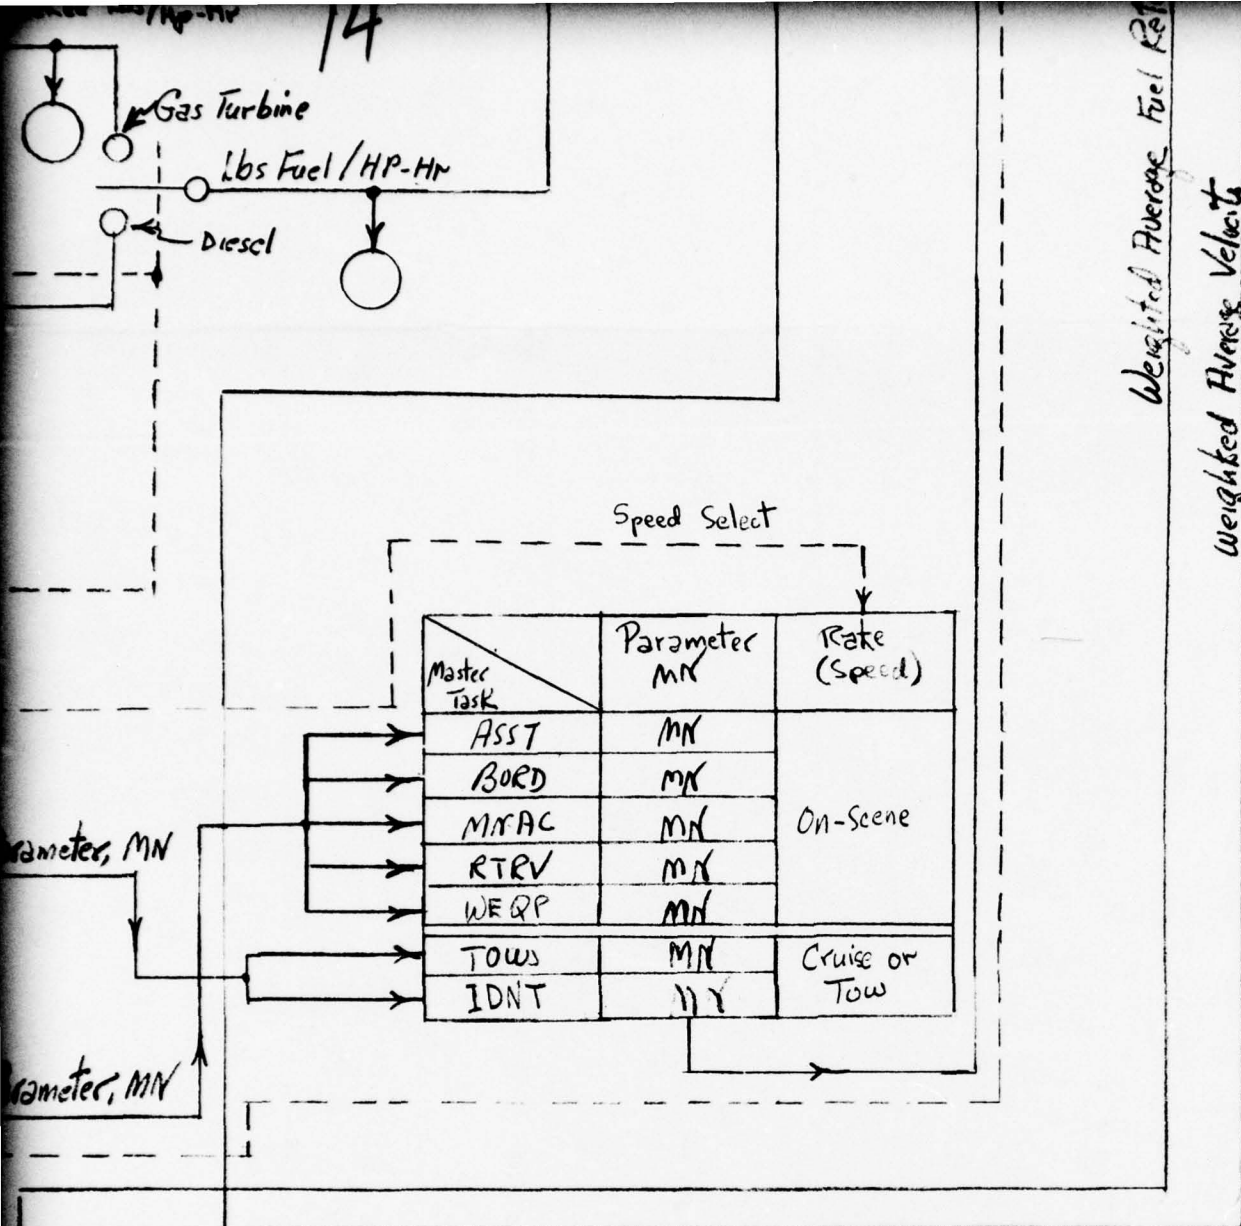 /Hp-Hr
14
Gas Turbine
Lbs Fuel/HP-Hr
Diesel
Weighted Average Fuel
Weighted Average Velocity
Speed Select
Master
Task
Parameter
MN
Rate
(Speed)
ASST MN
BORD MN
MNAC MN
RTRV MN
WEQP MN
On-Scene
TOWS MN
IDNT
Cruise or
Tow
rameter, MN
rameter, MN